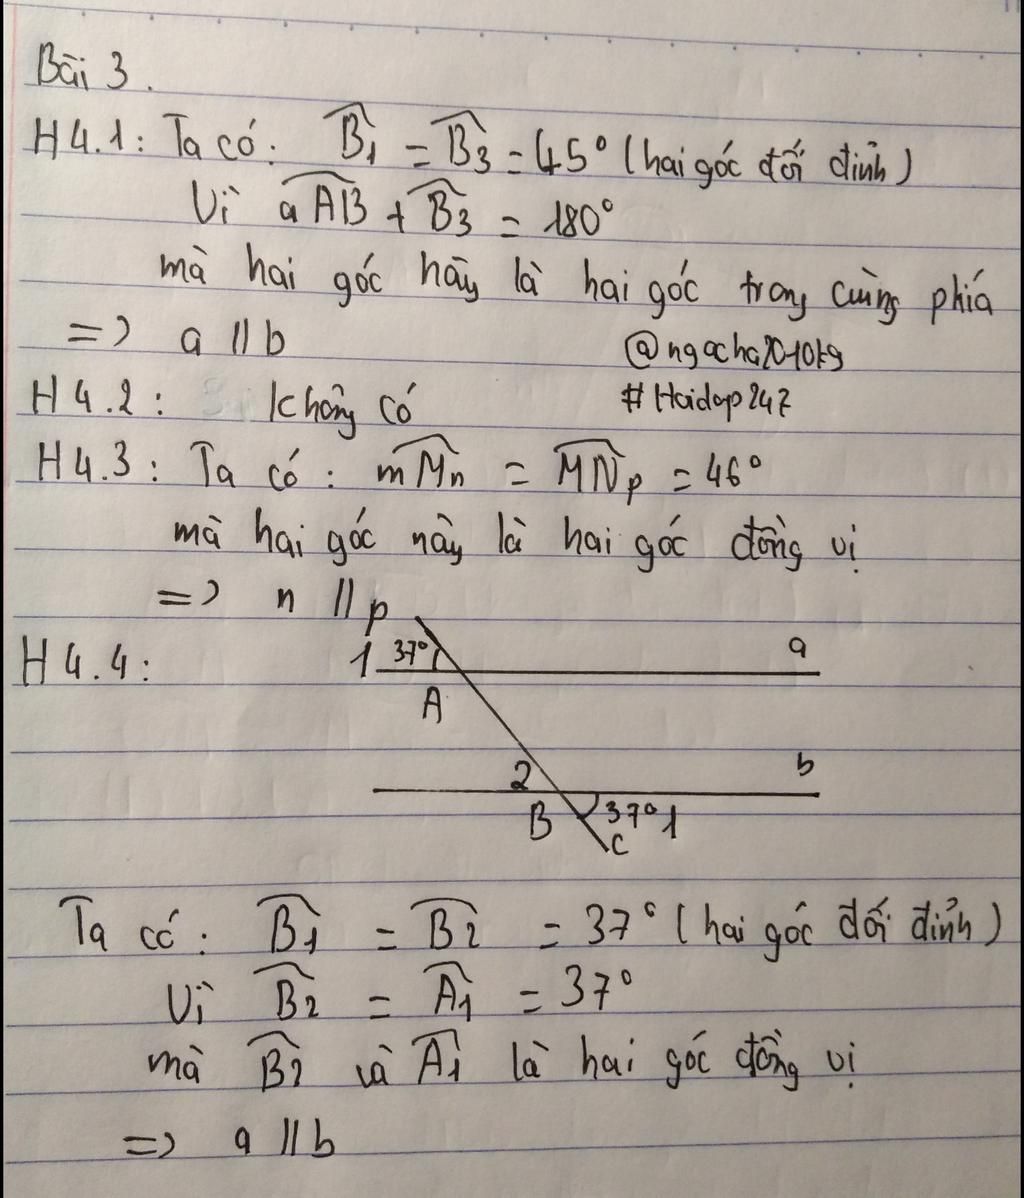 Bài 3.
H4.1: Ta có: B̂1 = B̂3 = 45° (hai góc đối đỉnh)
Vì aAB + B̂3 = 180°
mà hai góc này là hai góc trong cùng phía
=> a // b
@ngocha2010kg
H4.2: Không có
#Hoidap247
H4.3: Ta có: mMn = MNp = 46°
mà hai góc này là hai góc đồng vị
=> n // p
H4.4:
1 37° a
A
2 b
B 37° 1
C
Ta có: B̂1 = B̂2 = 37° (hai góc đối đỉnh)
Vì B̂2 = Â1 = 37°
mà B̂2 và Â1 là hai góc đồng vị
=> a // b